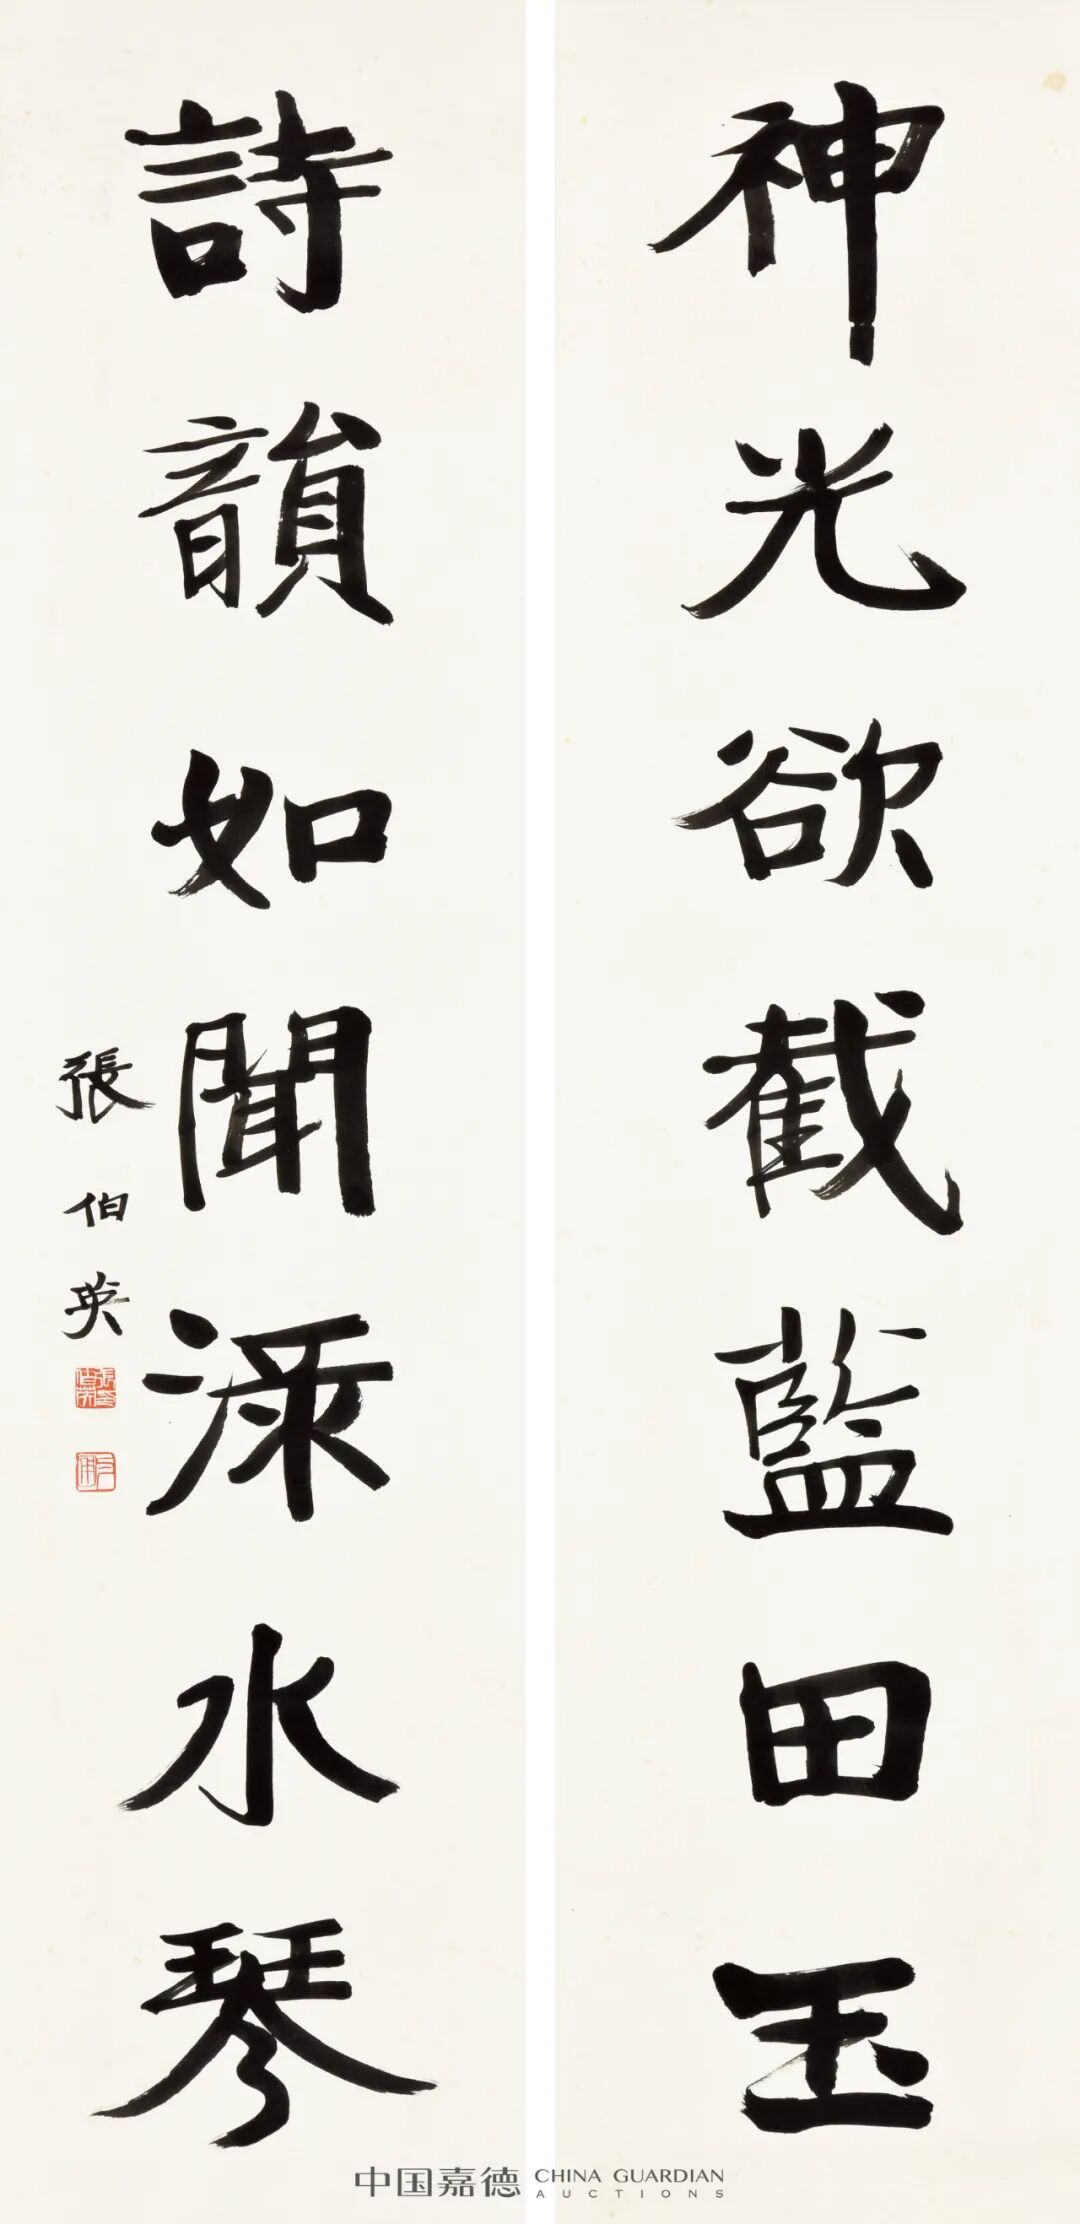 神光欲截藍田玉
詩韻如聞淥水琴
張伯英
張伯英印
勺圃
中国嘉德 CHINA GUARDIAN
AUCTIONS